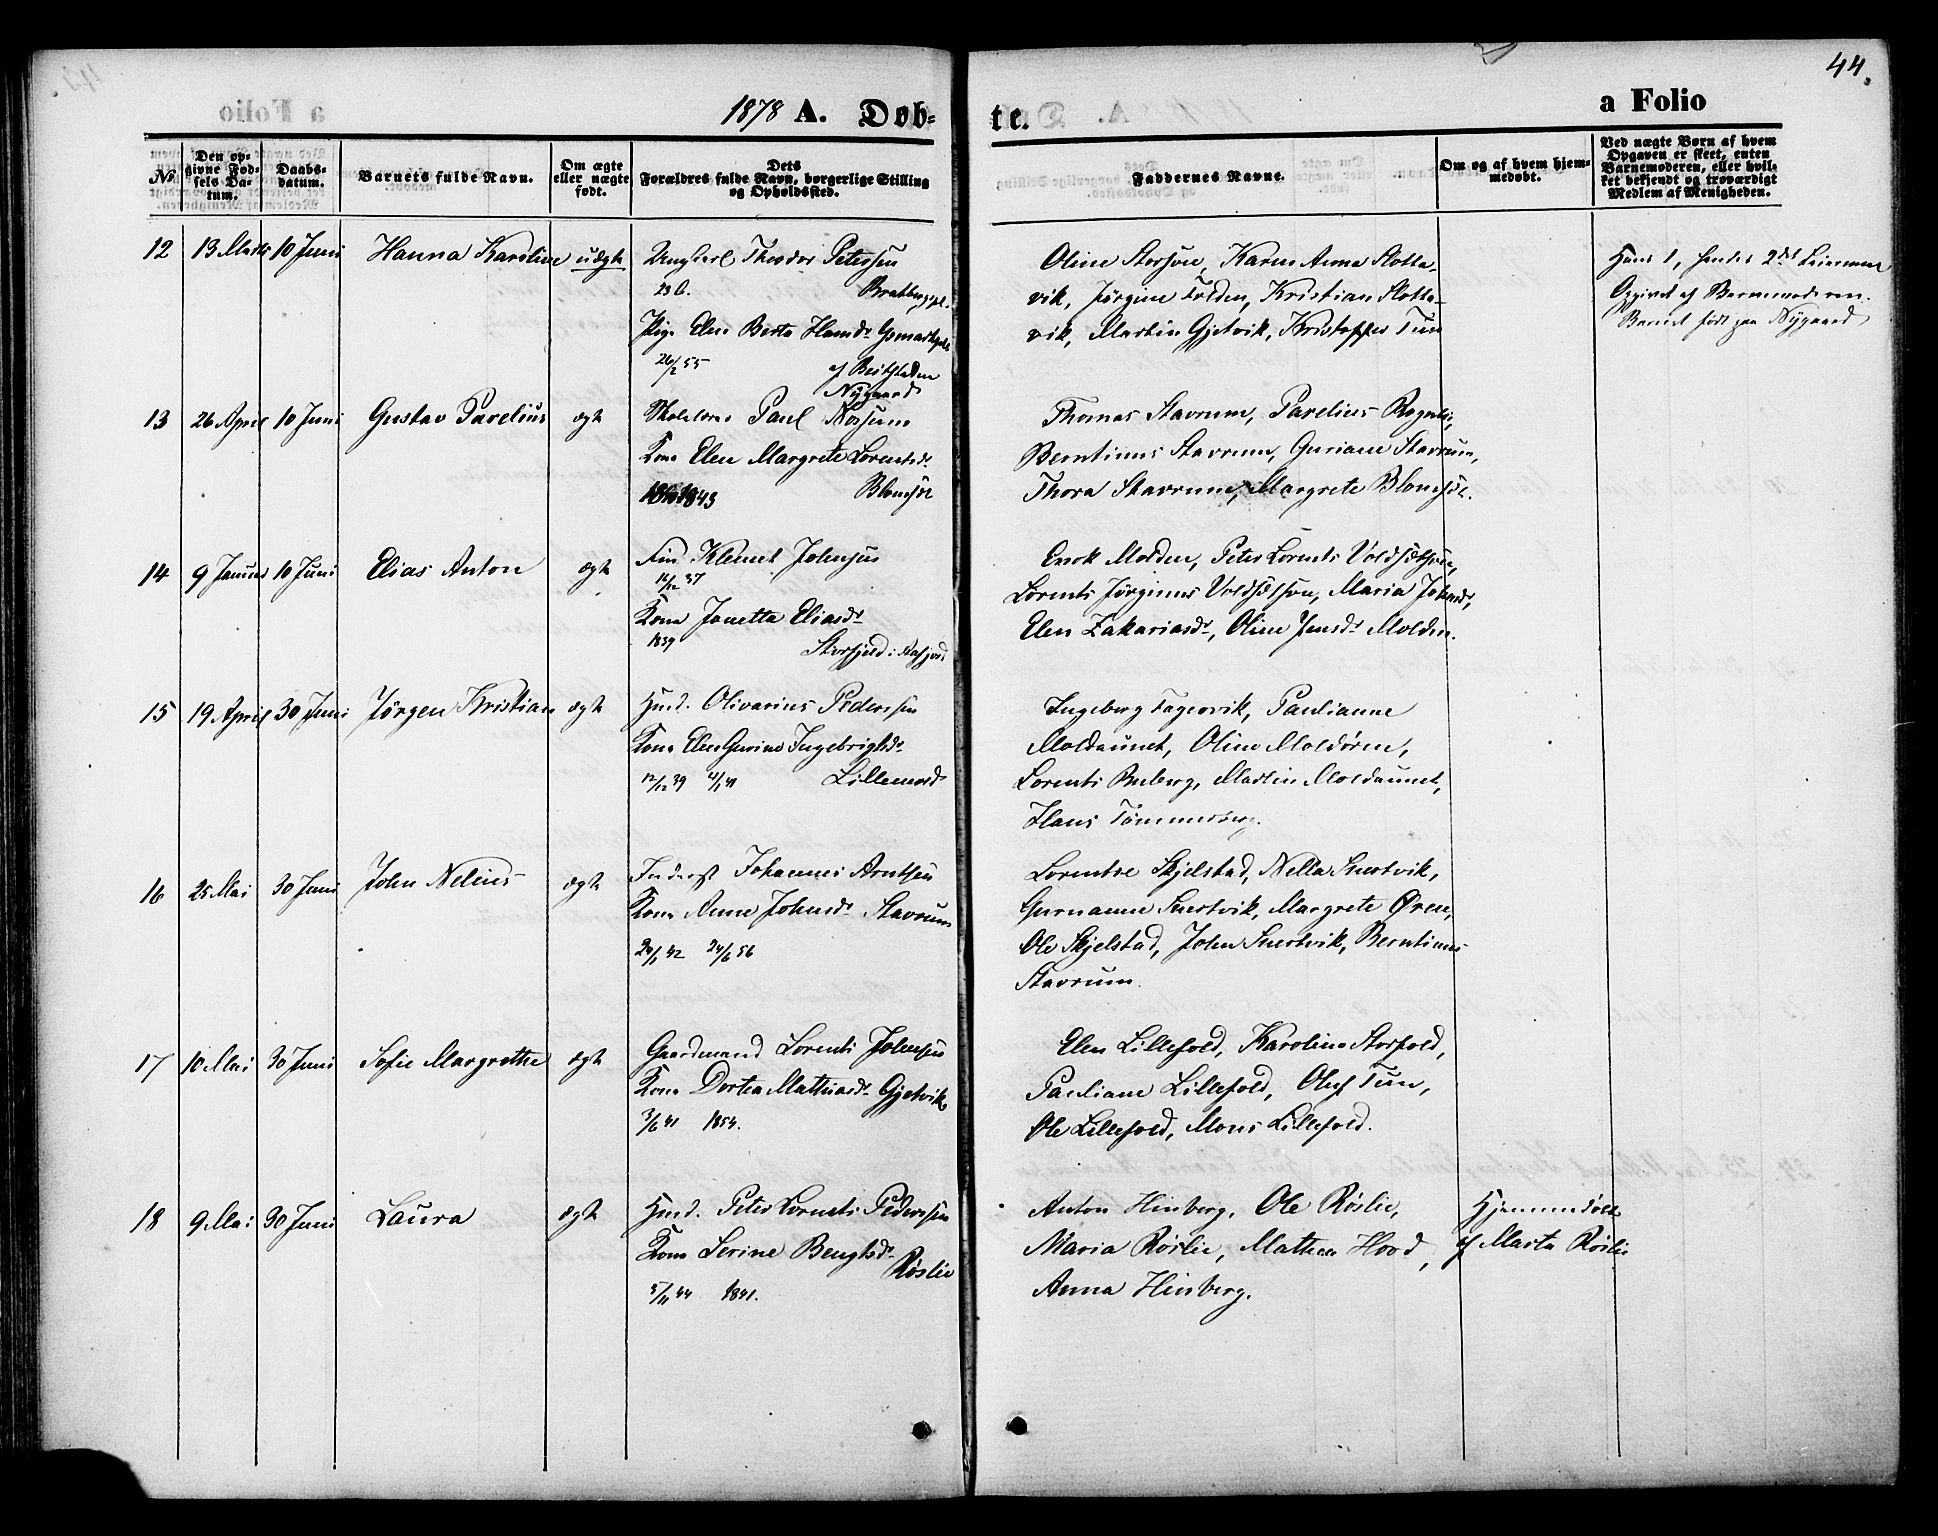 44.
1878 A. Døb-
te.
a Folio
No
Den op-
givne Fød-
sels Da-
tum.
Daabs-
datum.
Barnets fulde Navn.
Om ægte
eller uægte
født.
Dets
Forældres fulde Navn, borgerlige Stilling
og Opholdssted.
Faddernes Navne.
Om og af hvem hjem-
medøbt.
Ved uægte Børn af hvem
Opgaven er skeet, enten
Barnemoderen, eller hvil-
ket bekjendt og troværdigt
Medlem af Menigheden.
12 13 Marts 10 Juni Hanna Karoline uægte Ungkarl Theodor Petersen
23 Bratberg
Pige Elen Berta Hansdr
26/2 55
Nygaard
Oline Storsøe, Karen Anna Slotta-
vik, Jørgine Folden, Kristian Slotta-
vik, Martin Gjetvik, Kristoffer Tun
Hans 1, hendes 2det Leiermaal
Opgivet af Barnemoderen.
Barnet født paa Nygaard
13 26 April 10 Juni Gustav Parelius ægte Paul
Kone Elen Margrete Lorentsdr
1843
Thomas Stavrum, Parelius
Berntinus Stavrum, Guriane Stavrum,
Thora Stavrum, Margrete
14 9 Januar 10 Juni Elias Anton ægte Fin Klemet Johnsen
12 37
Kone Jonetta Eliasdr
1839
Storfjeld i Aafjord
Enok Molden, Peter Lorents
Lorents Jørginus Maria
Elen Zakariasdr, Oline Jensdr Molden.
15 19 April 30 Juni Jørgen Kristian ægte Husmd. Olivarius Pedersen
Kone Elen Gurine Ingebrigtsdr
12/12 39 4/1 41
Ingeborg Fagervik, Paulianne
Moldaunet, Oline Moldøren,
Lorents Buberg, Martin Moldaunet,
Hans
16 25 Mai 30 Juni John Nelius ægte Inderst Johannes Arntsen
Kone Anne Johnsdr Stavrum
20/1 42 24/6 56
Lorentse Skjelstad, Nella Snertvik,
Gurnanna Snertvik, Margrete Øren,
Ole Skjelstad, John Snertvik, Berntinus
Stavrum.
17 10 Mai 30 Juni Sofie Margrethe ægte Gaardmand Lorents Johnsen
Kone Dortea Mathiasdr Gjetvik
3/6 41 1854.
Elen Lillefold, Karoline Storfold,
Pauliane Lillefold, Oluf Tun,
Ole Lillefold, Mons Lillefold.
18 9 Mai 30 Juni Laura ægte Husmd. Peter Lorents Pedersen
Kone Serine Bengtsdr
Røslie
5/11 44 1841.
Anton Hinberg, Ole Røslie,
Maria Røslie, Mathea Hood,
Anna Hinberg.
Hjemmedøbt
af Marta Røslie